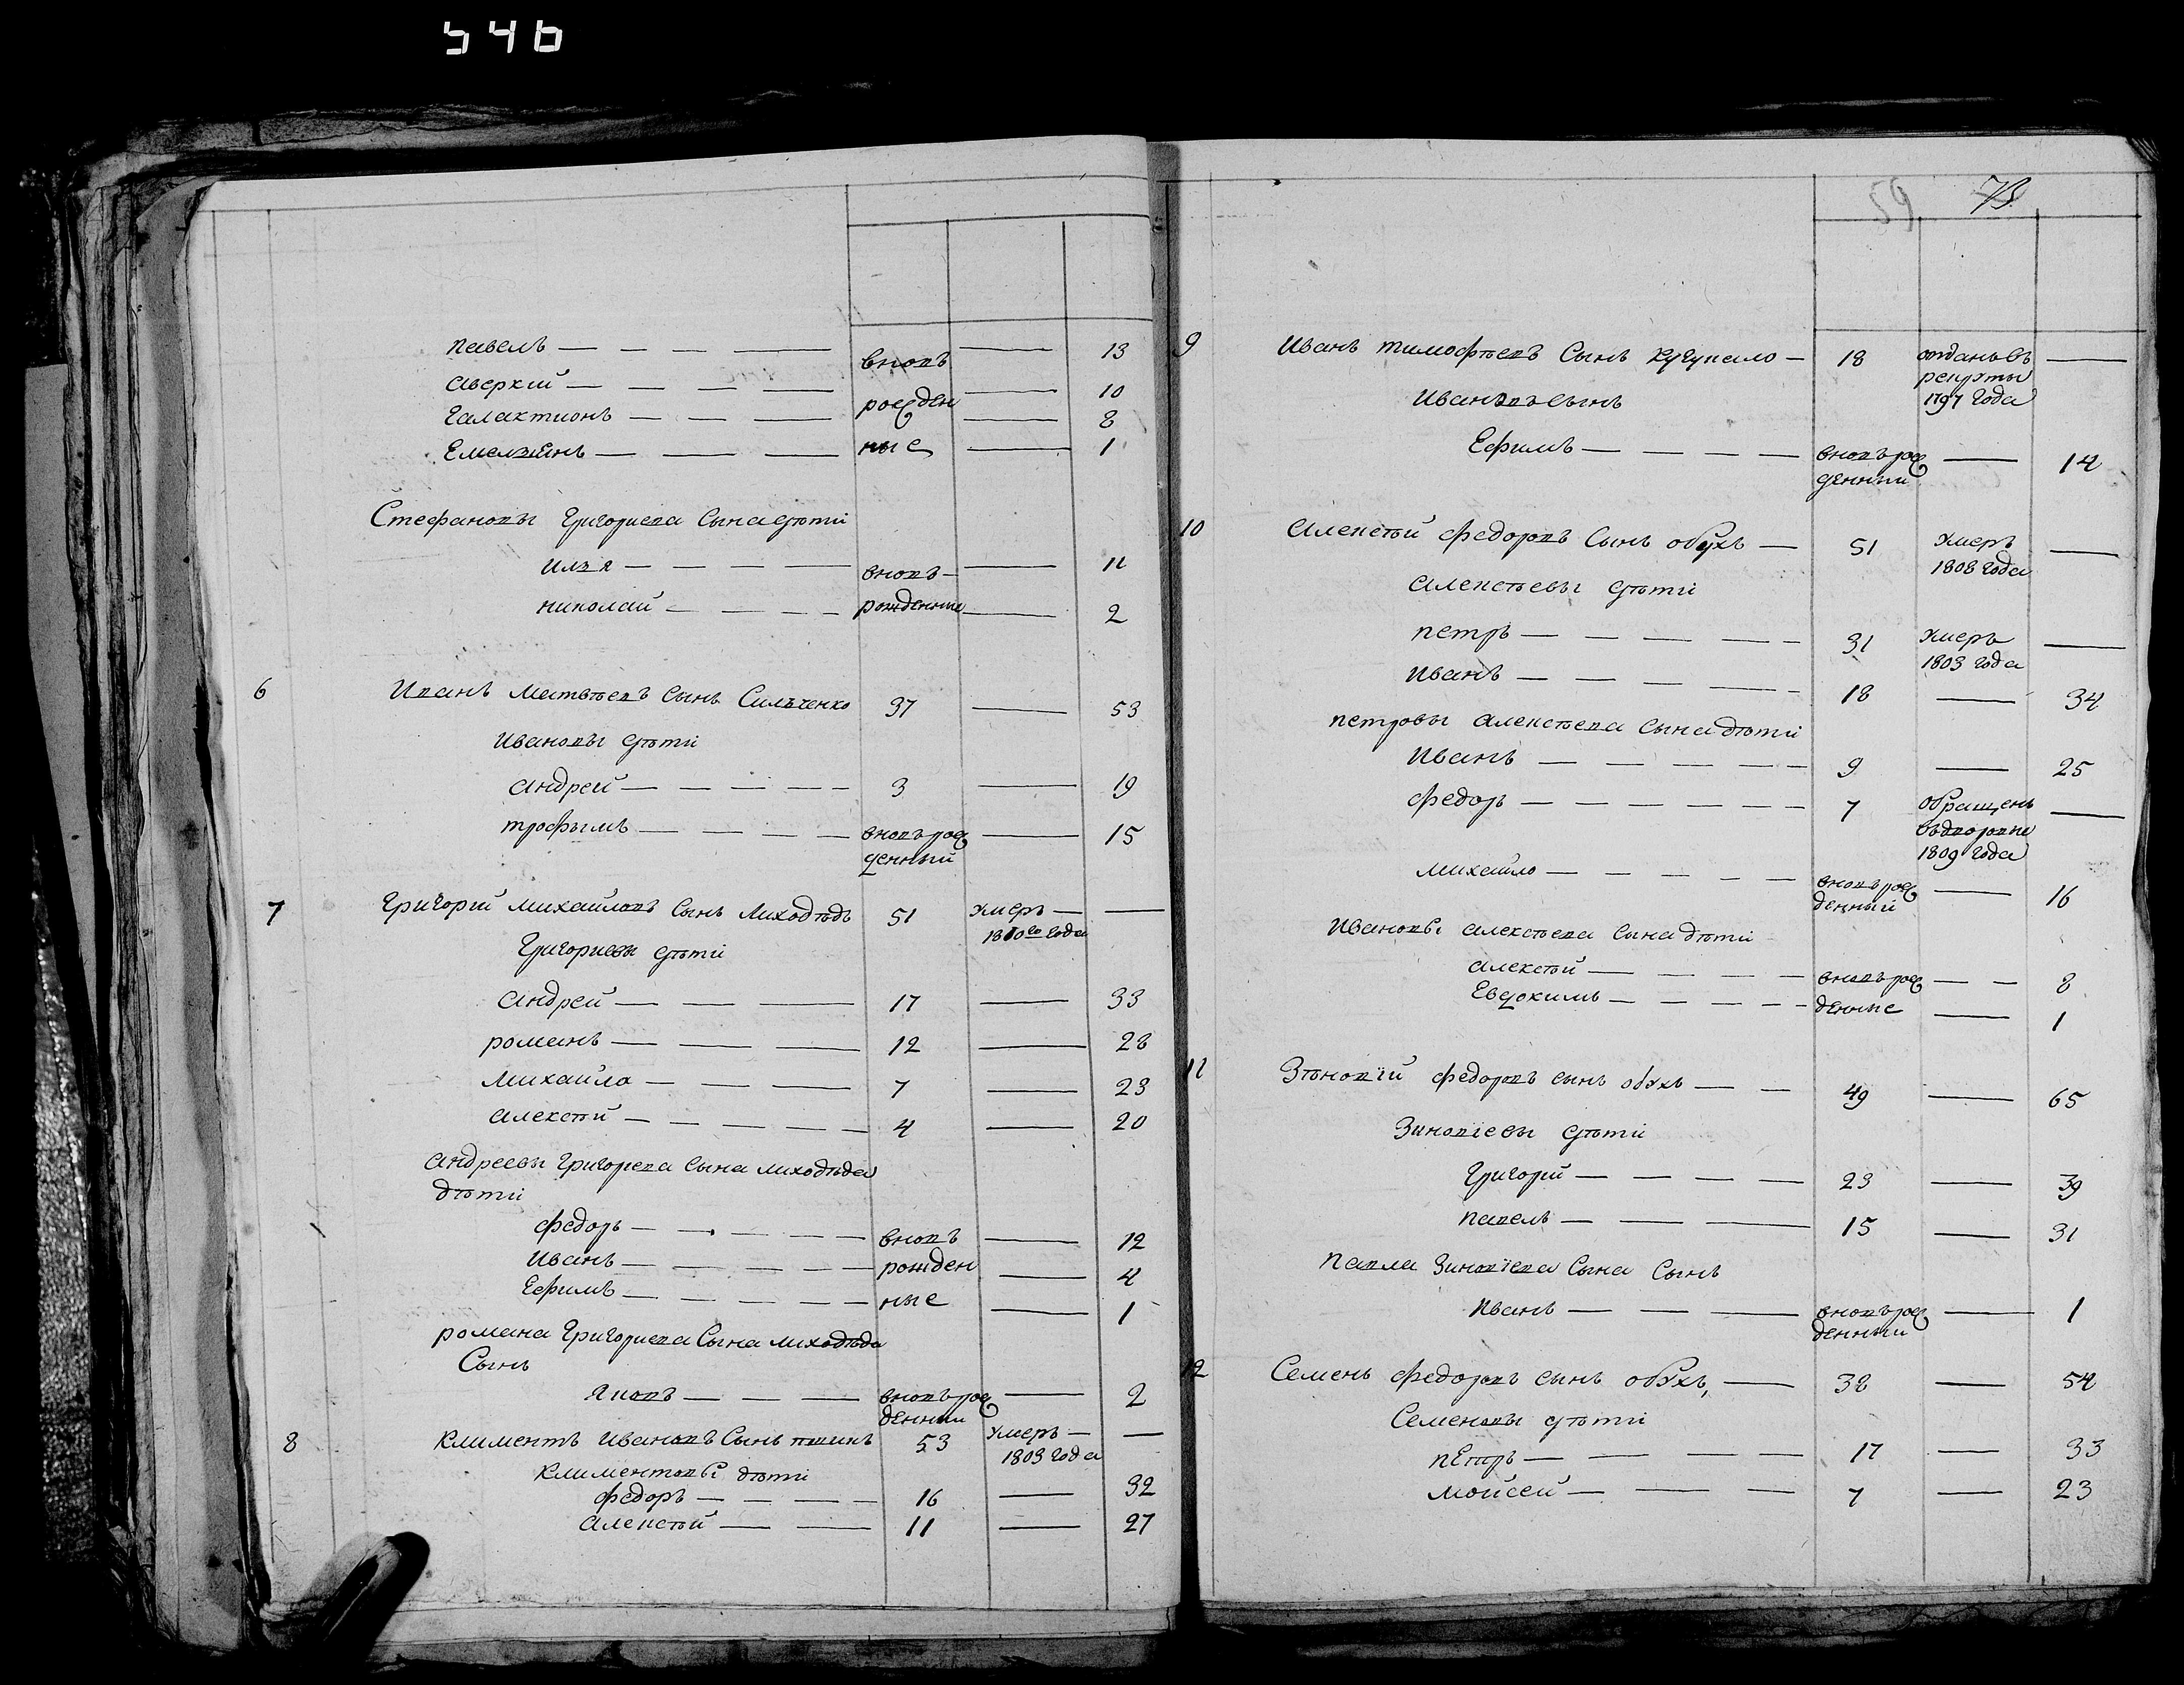 546
павелъ — — — — вновь — 13
аверкий — — — — рожден — 10
Галактионъ — — — 8
Емельянъ — — — ные — 1
Стефановы Григориева Сына дѣти
Илья — — — — вновь — 11
николай — — — рожденные — 2
6 Иванъ матвѣевъ сынъ Сильченко 37 — 53
Ивановы дѣти
андрей — — — — 3 — 19
трофымъ — — — — вновь рож — 15
денный
7 Григорий михайловъ Сынъ Лиходѣдъ 51 умеръ — —
1810го года
Григориевы дѣти
андрей — — — 17 — 33
романъ — — — 12 — 28
михайла — — — 7 — 23
алексѣй — — — — 4 — 20
андреевы Григорева сына лиходѣда
дѣти
федоръ — — — — вновь — 12
Иванъ — — — — рожден — 4
Ефимъ — — — — ные — 1
романа Григориева Сына лиходѣда
Сынъ
Яковъ — — — вновь рож — 2
денный
8 климентъ Ивановъ Сынъ 53 умеръ — —
1803 года
климентовы дѣти
федоръ — — — — 16 — 32
алексѣй — — 11 — 27
59 73
9 Иванъ тимофѣевъ Сынъ — 18 отданъ въ —
рекруты
1797 года
Ивановъ сынъ
Ефимъ — — — — вновь рож — 14
денный
10 алексѣй федоровъ Сынъ обухъ — 51 умеръ —
1808 года
алексѣевы дѣти
петръ — — — — 31 умеръ —
1803 года
Иванъ — — — — 18 — 34
петровы алексѣева сына дѣти
Иванъ — — — — — 9 — 25
федоръ — — — — — 7 обращенъ —
1809 года
михайло — — — — — вновь рож — 16
денный
Ивановы алексѣева сына дѣти
алексѣй — — — — вновь рож — — 8
Евдокимъ — — — — денные — 1
11 Зѣновий федоровъ сынъ обухъ — — 49 — 65
Зиновиевы дѣти
Григорий — — — — 23 — 39
павелъ — — — 15 — 31
павла Зиновиева Сына Сынъ
Иванъ — — — вновь рож — 1
денный
12 Семенъ федоровъ сынъ обухъ, — 38 — 54
Семеновы дѣти
пЕтръ — — — — 17 — 33
мойсей — — — — 7 — 23